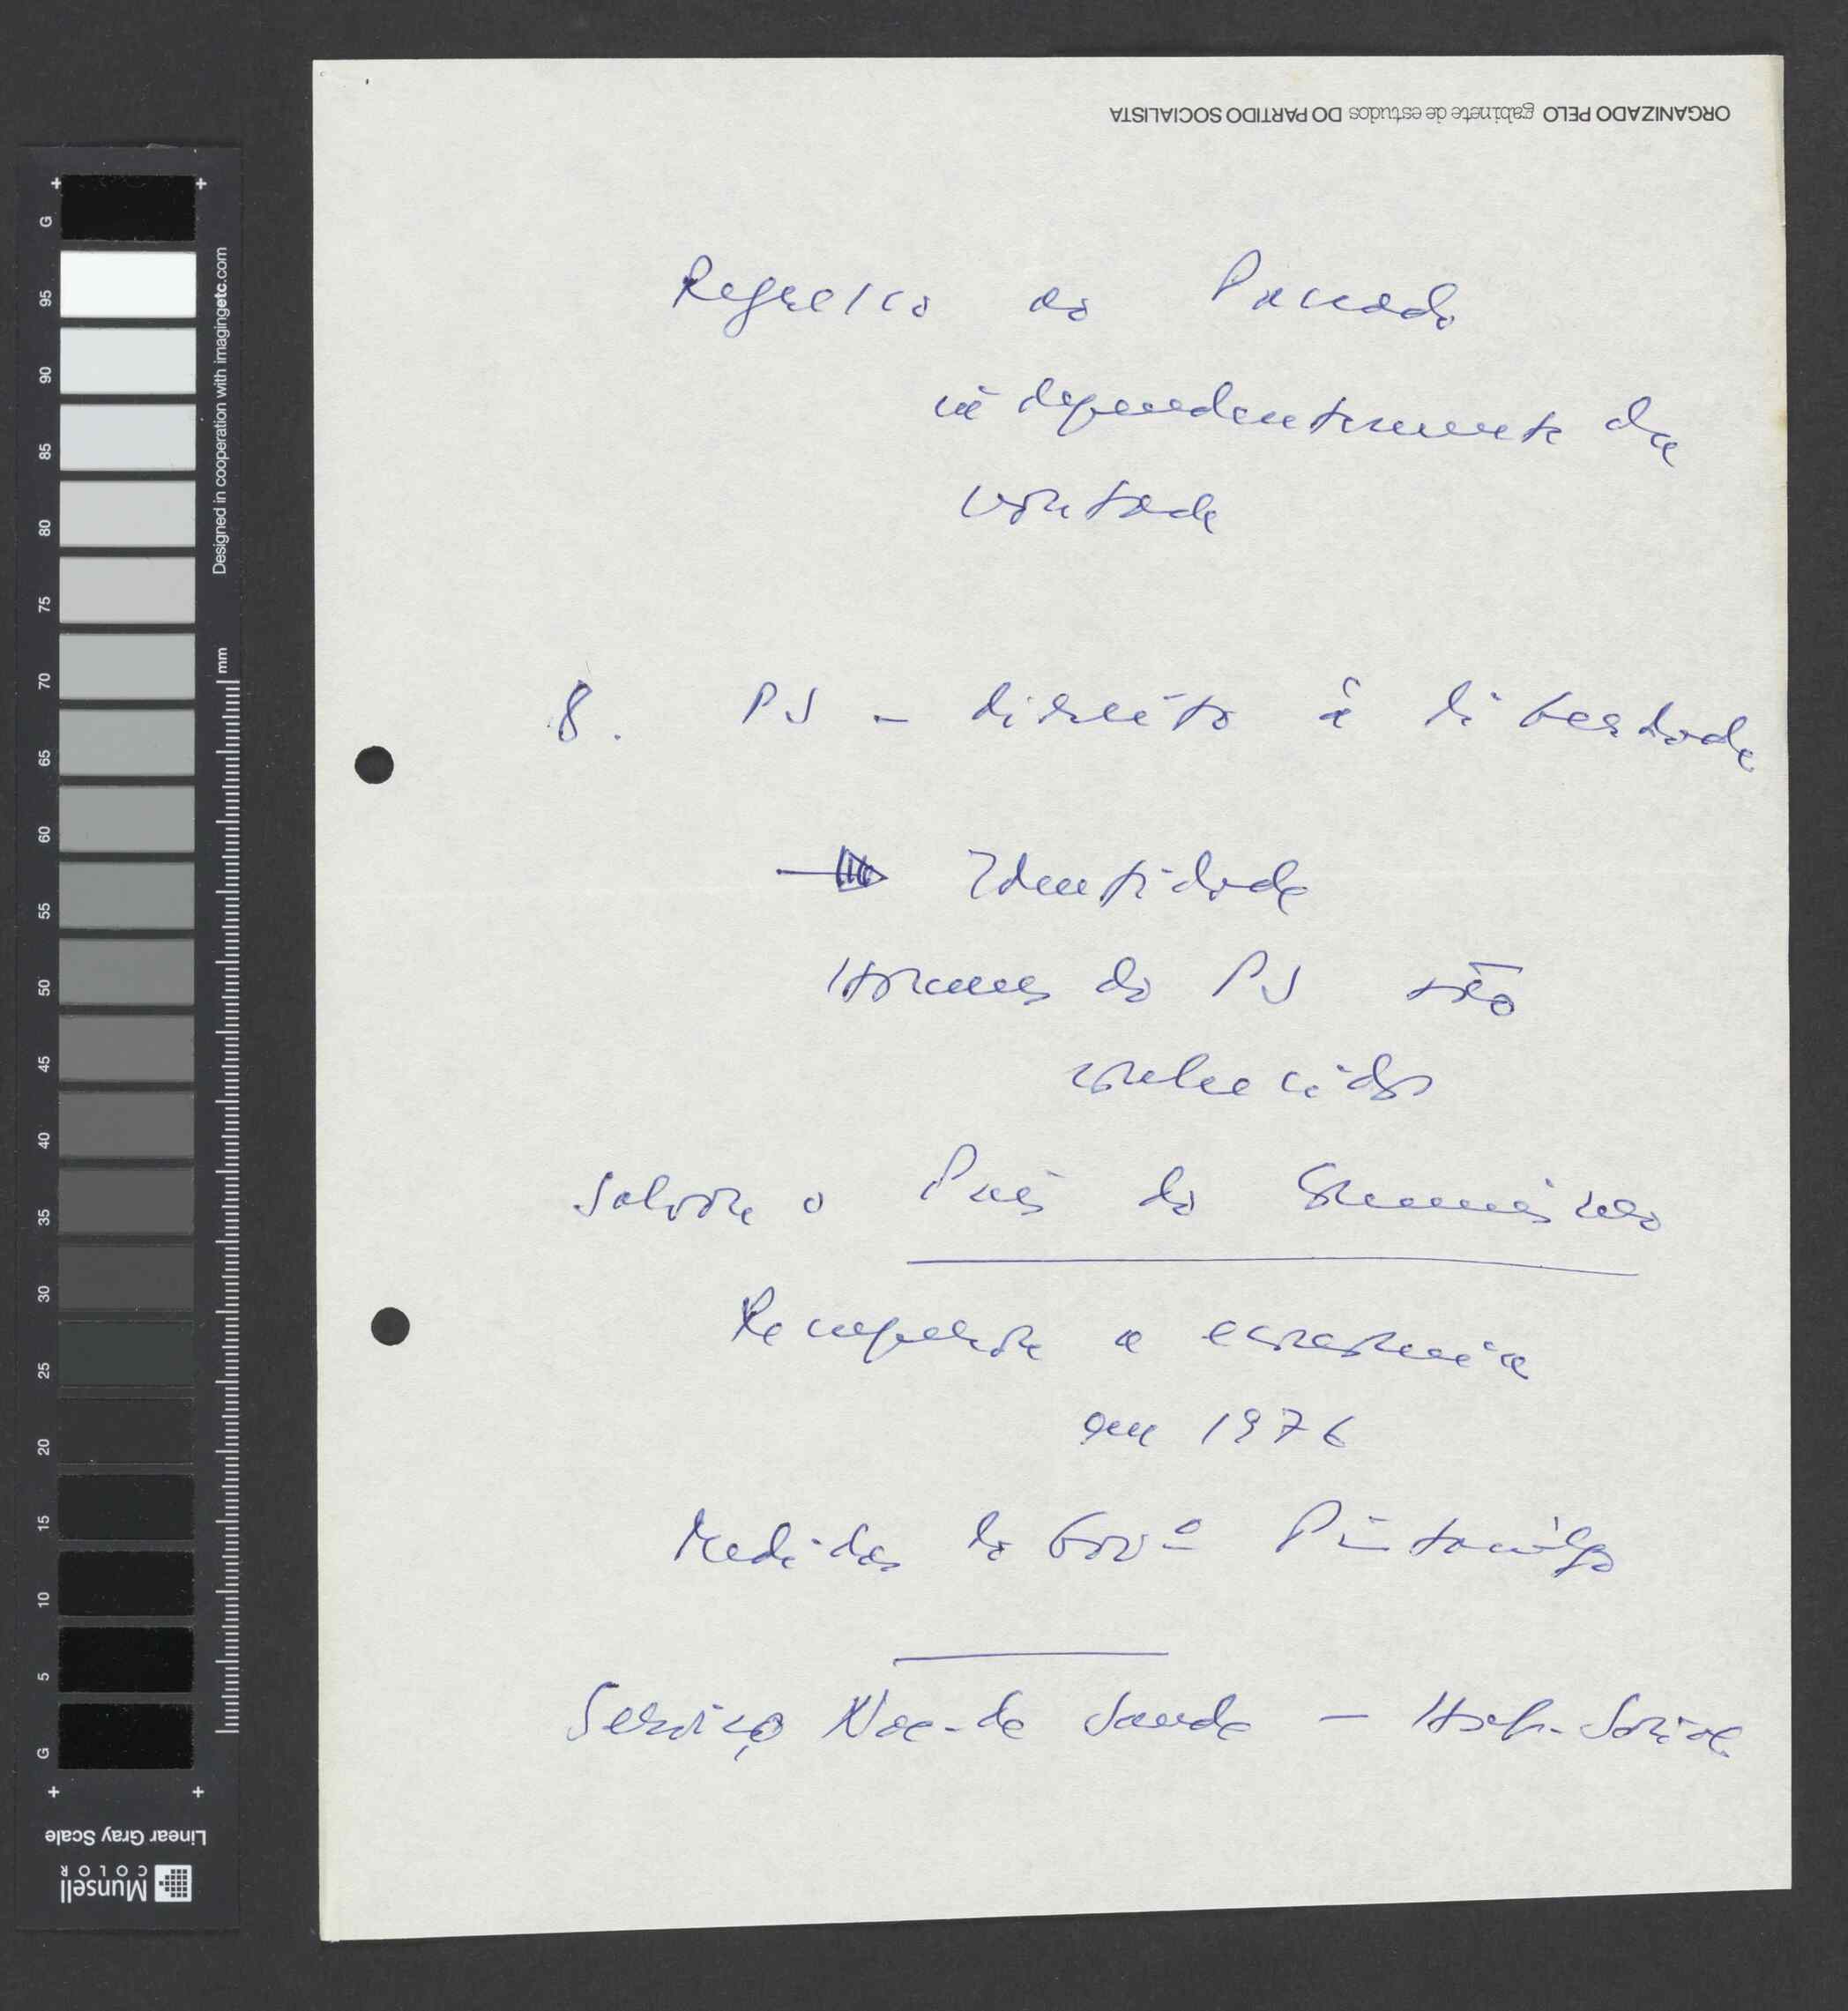 ORGANIZADO PELO gabinete de estudos DO PARTIDO SOCIALISTA
Regresso ao Passado
independentemente da
vontade
8. PS - direito à liberdade
Identidade
Homens do PS são
conhecidos
Salvar o País do Comunismo
Recuperar a economia
em 1976
Medidas do Govº Pintasilgo
Serviço Nac. de Saude -
G 95 90 85 80 75 70 65 60 55 50 45 40 35 30 25 20 15 10 5 G
Designed in cooperation with imagingetc.com
mm
Linear Gray Scale
Munsell
COLOR